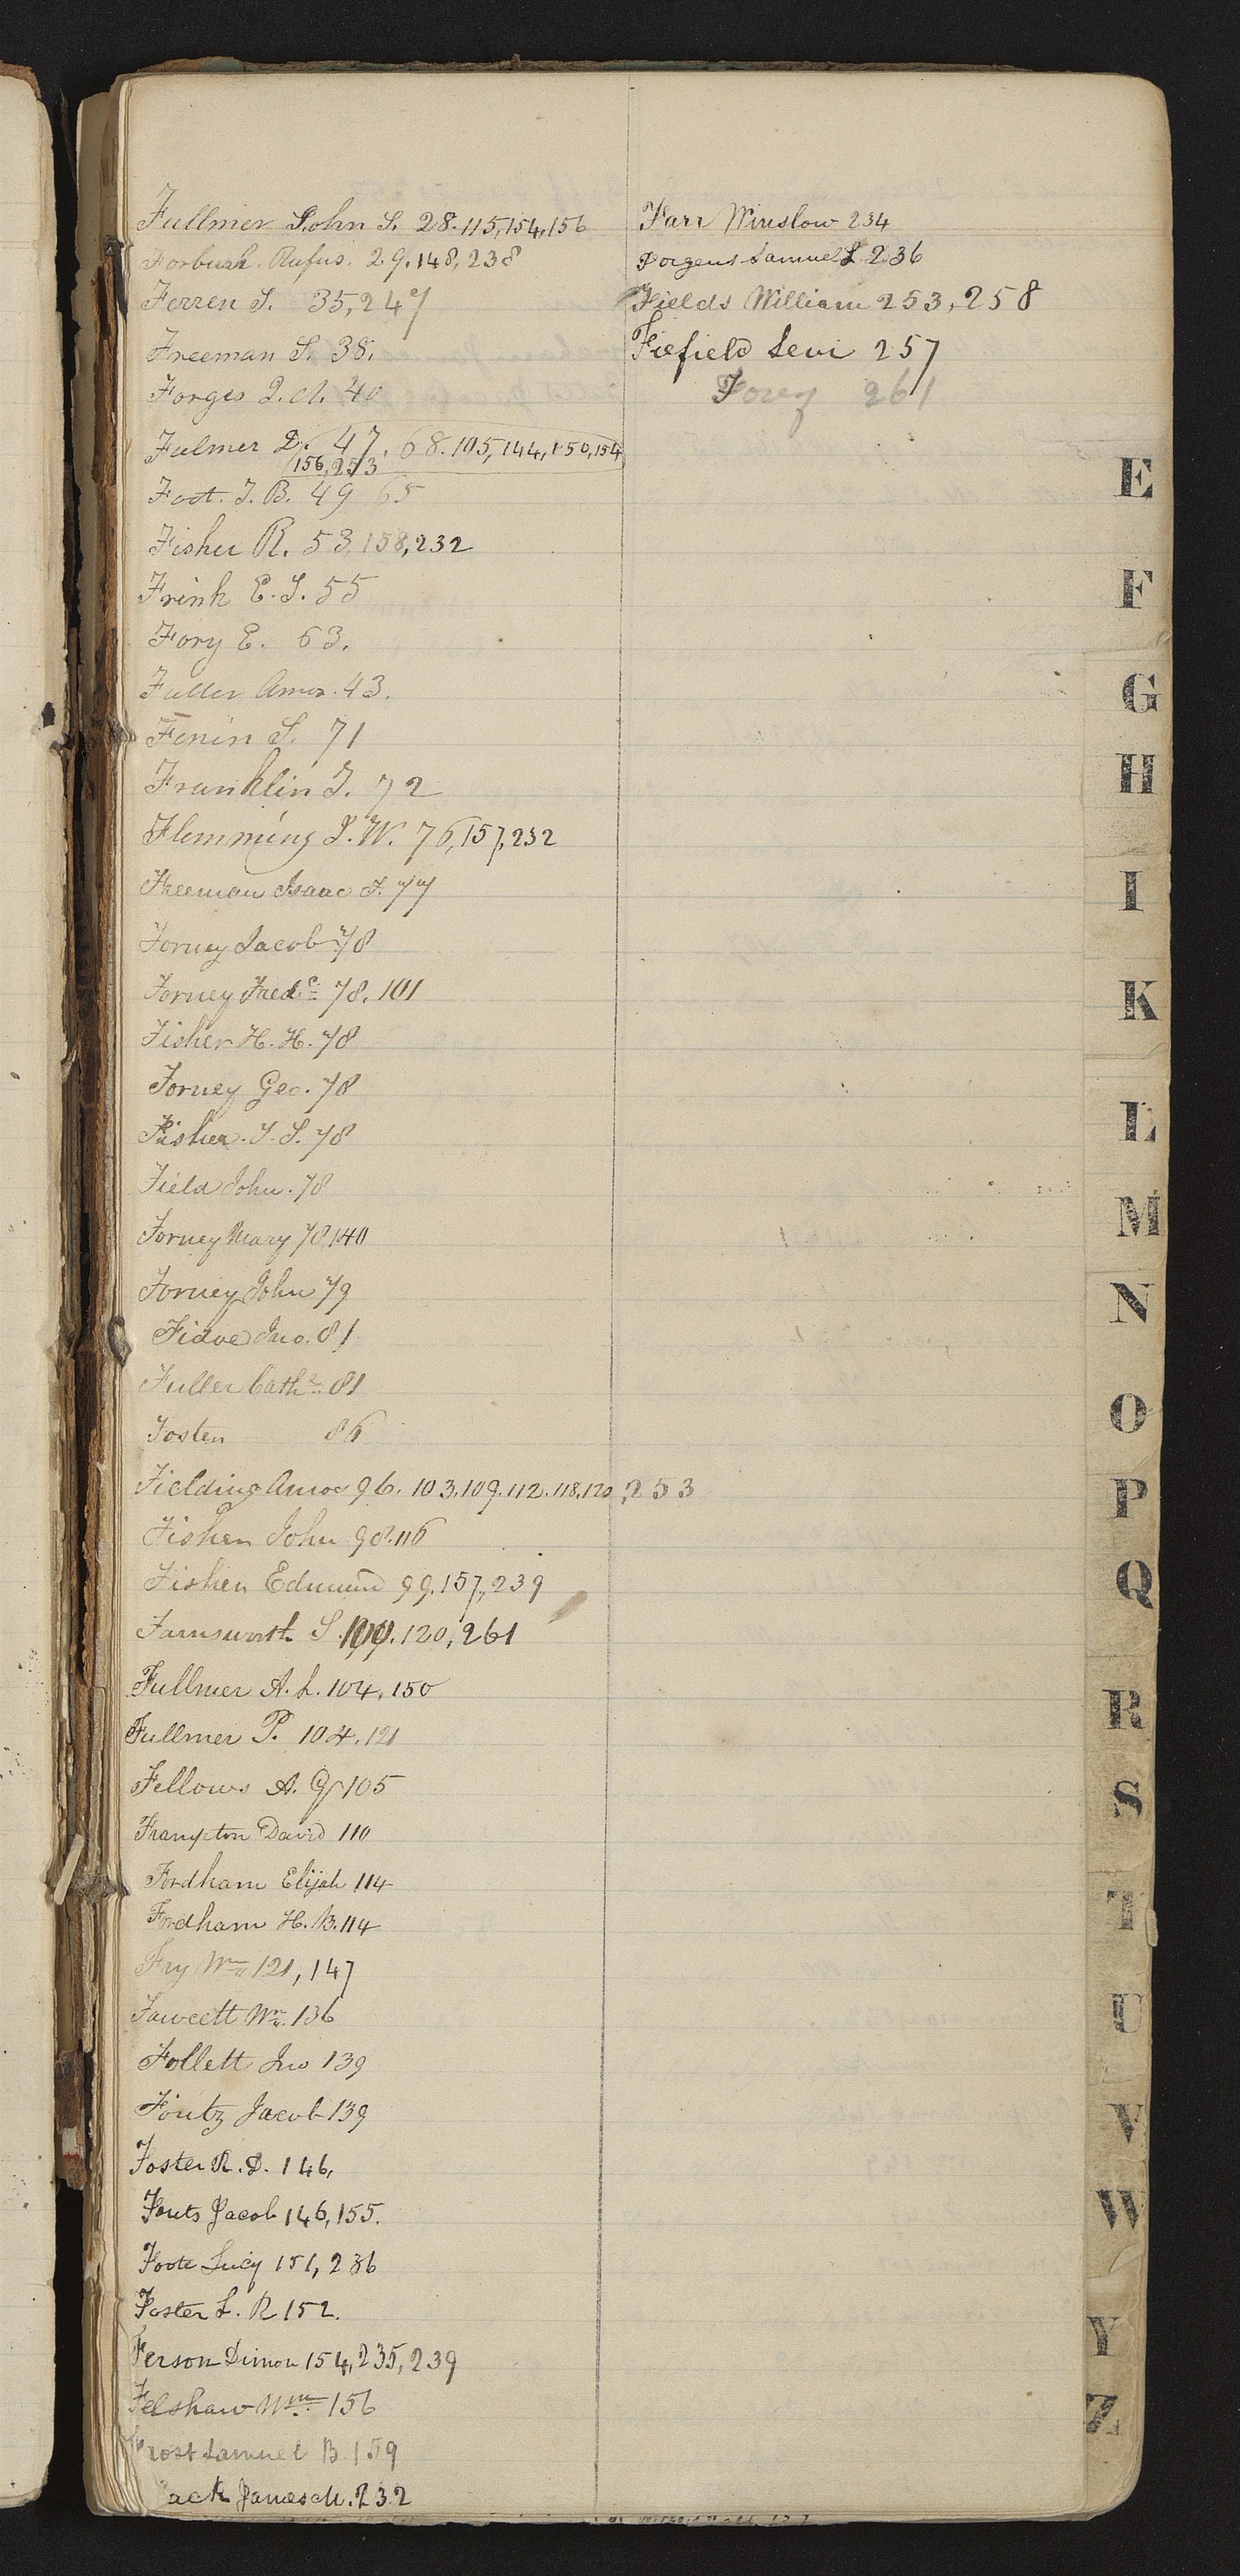 Fullmer John S. 28.115,154,156
Forbush Rufus. 29.148,238
Ferren S. 35,247
Freeman S. 38.
Forges 40
Fulmer D. 47. 68.105,144,150,154
156,253
Foot. T. B. 49 65
Fisher R. 53,158,232
Frink E. S. 55
Fory E. 63.
Fuller Amos. 43.
Fenin S. 71
Franklin J. 72
Flemming J. W. 76,157,232
Freeman Isaac F. 77
Forney Jacob 78
Forney Fredc 78. 101
Fisher H. H. 78
Forney Geo. 78
Fisher. J. S. 78
Field John. 78
Forney Mary 78,140
Forney John 79
Fidoe Jno. 81
Fuller Cathe 81
Foster 86
Fielding Amos 96. 103.109.112.118.120,253
Fisher John 98.116
Fisher Edmund 99.157,239
Farnsworth S. 100.120,261
Fullmer A. L. 104,150
Fullmer P. 104.121
Fellows A. G 105
Frampton David 110
Fordham Elijah 114
Fordham H. B. 114
Fry Wm 121,147
Fawcett Wm. 136
Follett Jno 139
Foutz Jacob 139
Foster R. D. 146,
Fouts Jacob 146,155.
Foote Lucy 151,236
Foster L. R 152.
Ferson Dimon 154,235,239
Felshaw Wm 156
Frost Samuel B. 159
ack James M. 232
Farr Winslow 234
Forgeus Samuel L 236
Fields William 253,258
Fiefield Levi 257
Forey 261
E
F
G
H
I
K
L
M
N
O
P
Q
R
S
T
U
V
W
Y
Z